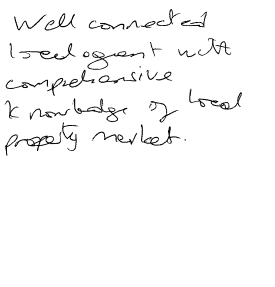 Well connected
local agent with
comprehensive
knowledge of local
property market.